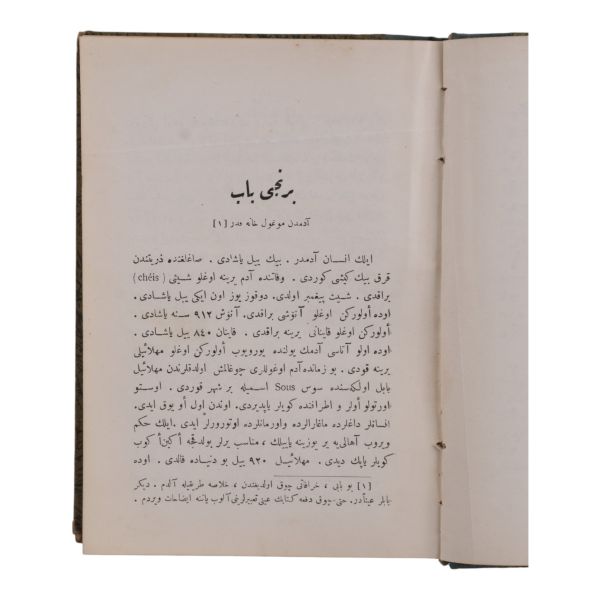 برنجی باب
آدمدن موغول خانه قدر [١]
ایلك انسان آدمدر . بیك ییل یاشادی . صاغلغنده ذریتندن
قرق بیك كیشی كوردی . وفاتنده آدم یرینه اوغلو شیثی ( chéis )
براقدی . شیث پیغمبر اولدی . دوقوز یوز اون ایكی ییل یاشادی .
اوده أولوركن اوغلو آنوشی براقدی . آنوش ٩١٢ سنه یاشادی .
أولوركن اوغلو قاینانی یرینه براقدی . قاینان ٨٤٠ ییل یاشادی .
اوده اولو آتاسی آدمك یولنده یورویوب أولوركن اوغلو مهلائیلی
یرینه قودی . بو زمانده آدم اوغوللری چوغالمش اولدقلرندن مهلائیل
بابل اولكه‌سنده سوس Sous اسمیله بر شهر قوردی . اوستو
اورتولو أولر و اطرافنده كویلر یاپدیردی . اوندن اول أو یوق ایدی .
انسانلر داغلرده ماغارالرده واورمانلرده اوتورورلر ایدی . ایلك حكم
ویروب آهالی‌یه یر یوزینه یاییلك ، مناسب یرلر بولدقجه أكین أكوب
كویلر یاپك دیدی . مهلائیل ٩٢٠ ییل بو دنیاده قالدی . اوده
[١] بو بابی ، خرافاتی چوق اولدیغندن ، خلاصه طریقیله آلدم . دیكر
بابلر عیناًدر . حتی چوق دفعه كتابك عینی تعبیرلرینی آلوب یاننه ایضاحات ویردم .